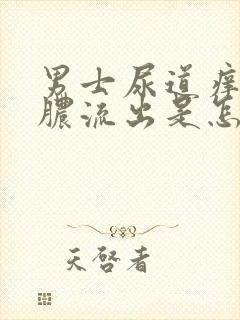 男士尿道痒
膿流出是怎
天啓者